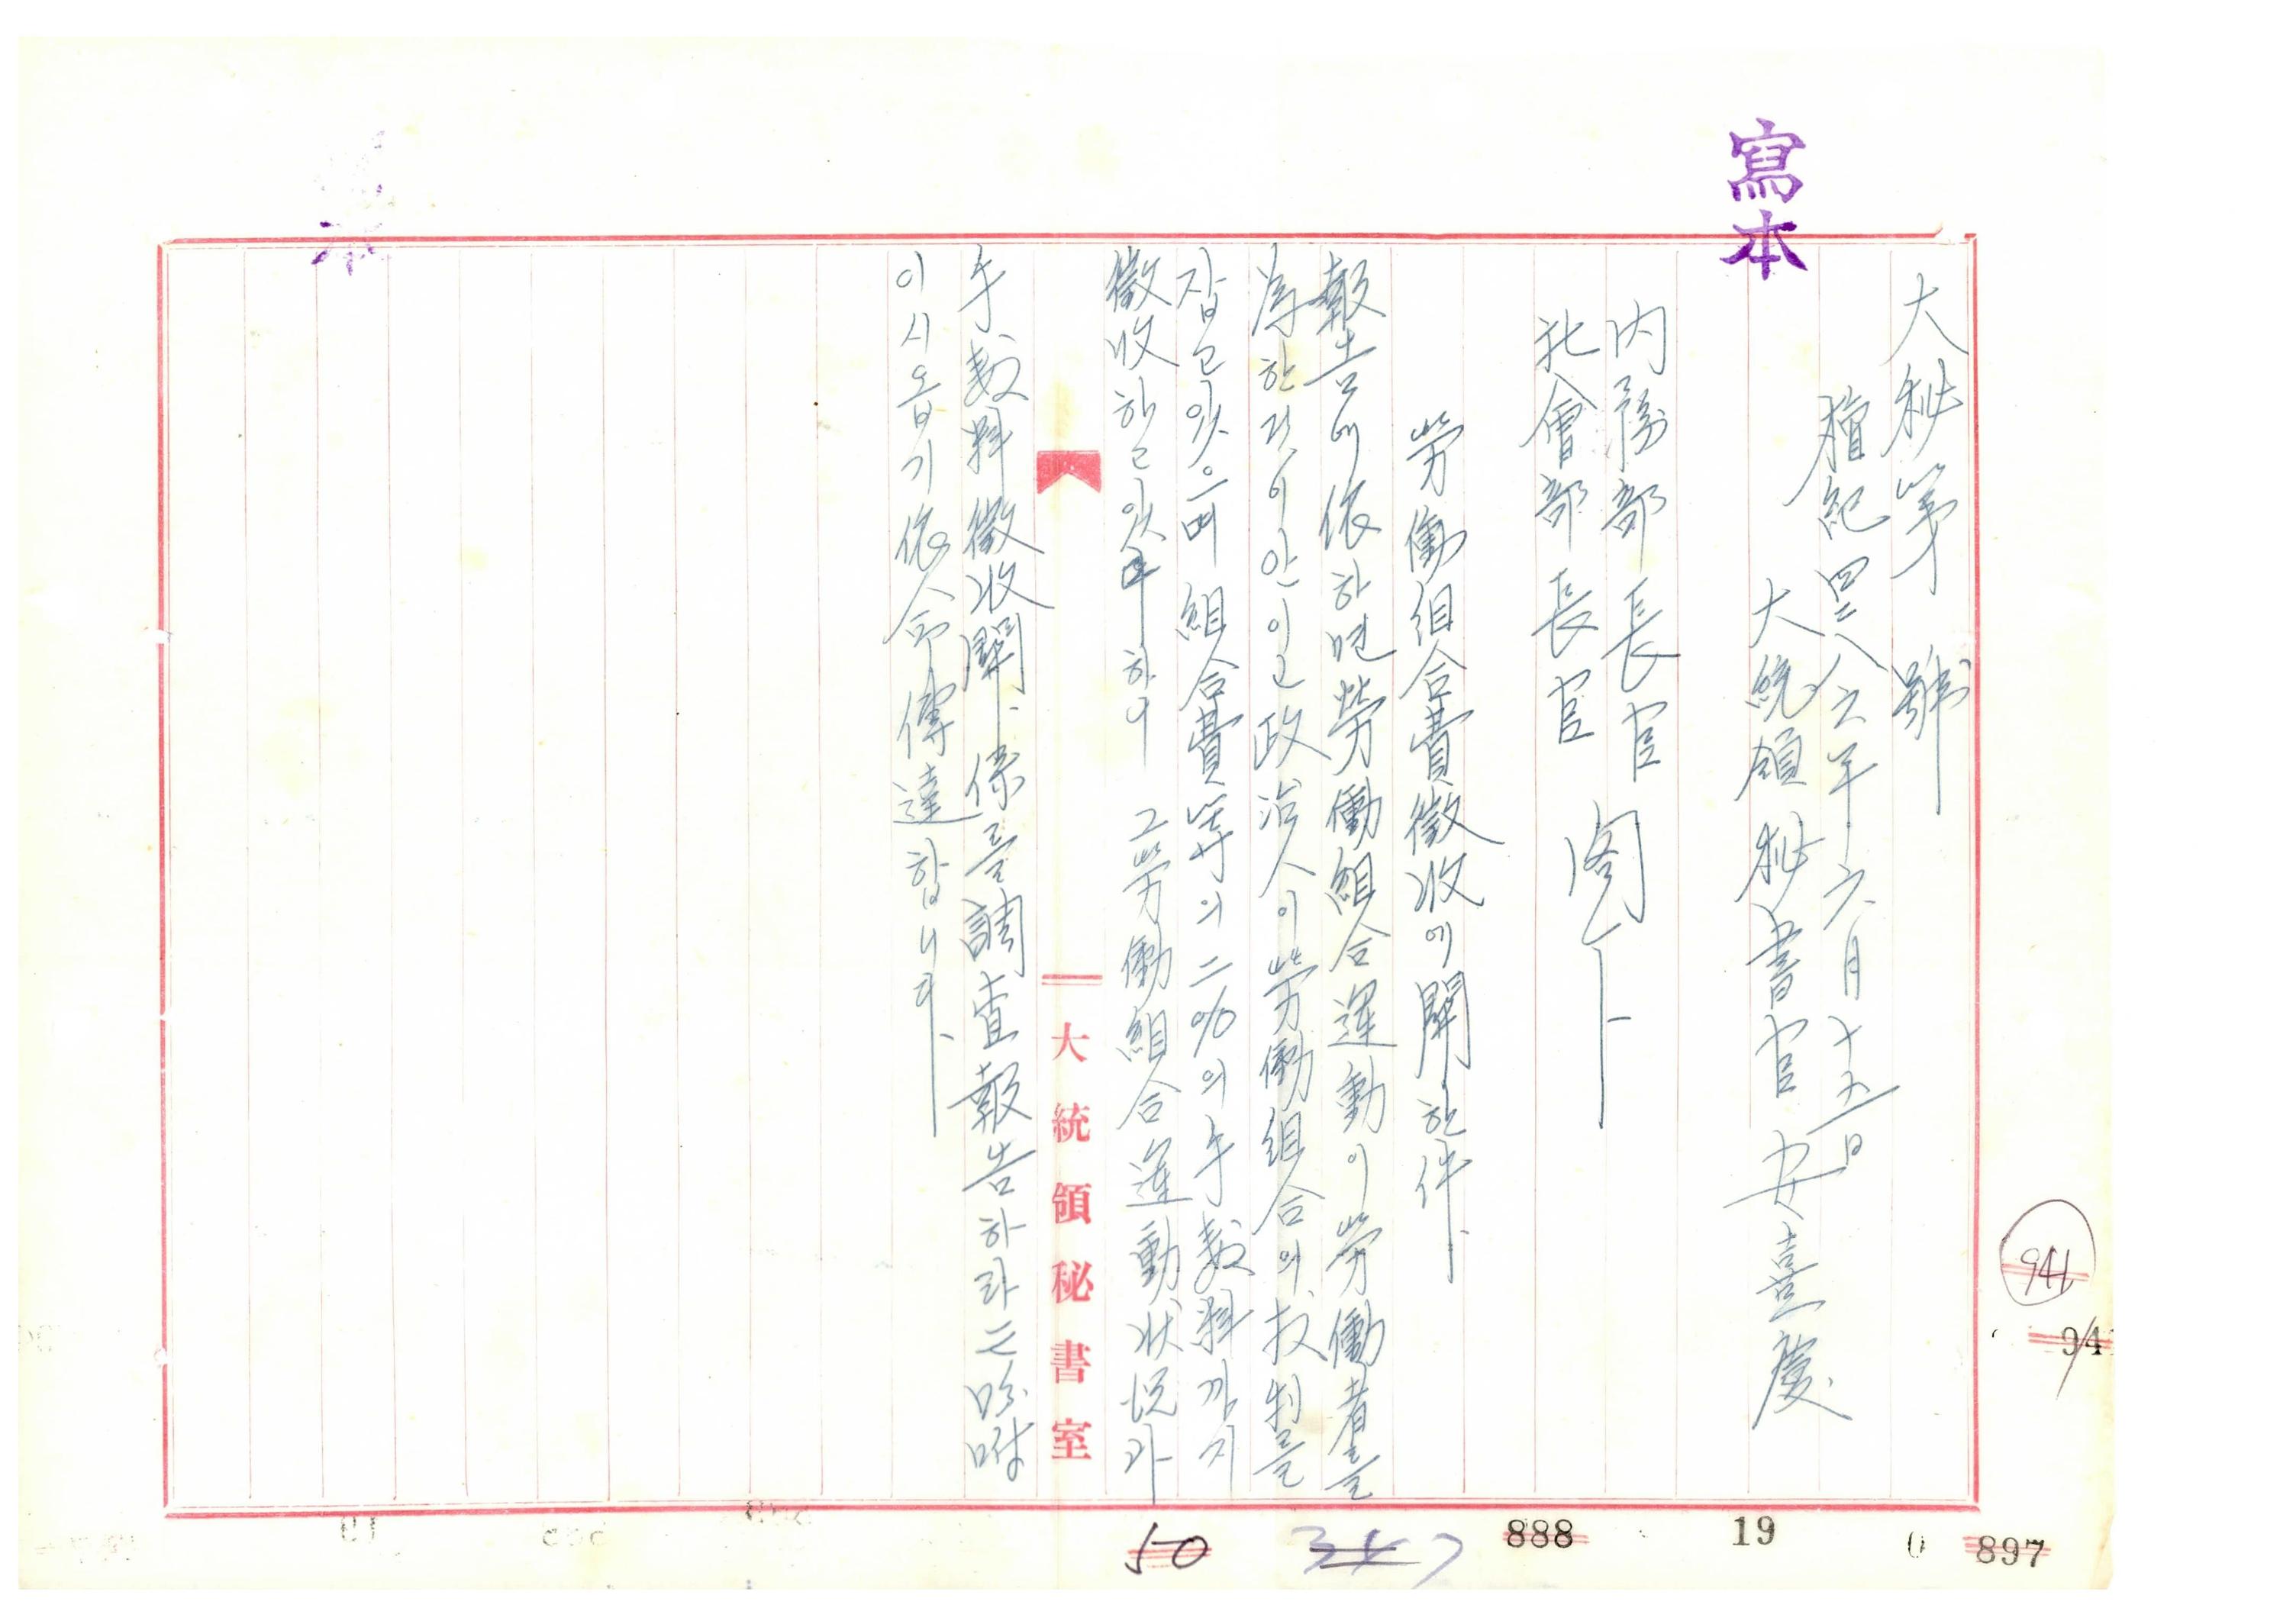 寫本
大秘第 號
檀紀四二八六年六月十五日
大統領秘書官 安喜慶
內務部長官
社會部長官 閣下
勞働組合費徵收에關한件
報告에依하면勞働組合運動이勞働者를
爲한것이안이고政治人이勞働組合의权制를
잡고있으며組合費等의二%의手數料까지
徵收하고있다하니 그勞働組合運動狀況과
大統領秘書室
手數料徵收關係를調査報告하라는吩咐
이시옵기依命傳達합니다
941
941
897
0
19
888
347
50